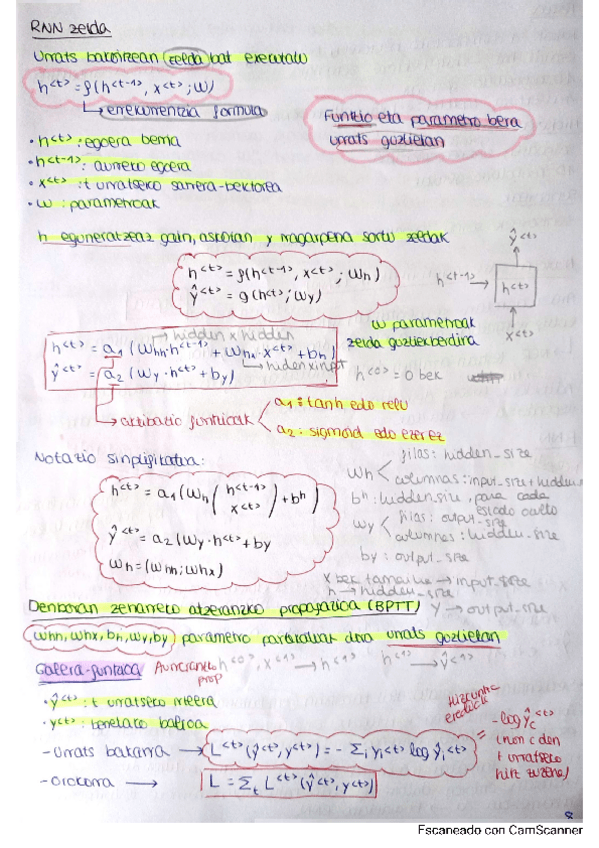 RNN zelda
Urrats bakoitzean zelda bat exekutatu
h<t> = f(h<t-1>, x<t>; w)
errekurrentzia formula
Funtzio eta parametro bera
urrats guztietan
• h<t> : egoera berria
• h<t-1> : aurreko egoera
• x<t> : t urratseko sarrera-bektorea
• w : parametroak
h eguneratzeaz gain, askotan y iragarpena sortu zeldak
h<t> = f(h<t-1>, x<t>; Wh)
ŷ<t> = g(h<t>; Wy)
ŷ<t>
h<t-1> → h<t>
x<t>
w parametroak
zelda guztiek berdina
hidden x hidden
h<t> = a1 (Whh·h<t-1> + Whx·x<t> + bh)
hidden x input
ŷ<t> = a2 (Wy·h<t> + by)
h<0> = 0 bek
aktibazio funtzioak
a1: tanh edo relu
a2: sigmoid edo ezerez
Notazio sinplifikatua:
h<t> = a1 (Wh (h<t-1> x<t>) + bh)
ŷ<t> = a2 (Wy·h<t> + by
Wh = (Whh; Whx)
Wh
filas: hidden_size
columnas: input_size + hidden_
bh: hidden_size, para cada
estado oculto
Wy
filas: output_size
columnas: hidden_size
by: output_size
x bek tamaina → input_size
h → hidden_size
y → output_size
Denboran zeharreko atzeranzko propagazioa (BPTT)
Whh, Whx, bh, Wy, by parametro partekatuak dira urrats guztietan
Galera-funtzioa
Aurreranzko
prop
h<0>, x<1> → h<1> h<1> → ŷ<1>
• ŷ<t> : t urratseko irteera
• y<t> : benetako balioa
- Urrats bakarra → L<t>(ŷ<t>, y<t>) = - Σi yi<t> log ŷi<t>
hizkuntza
ereduak
= -log ŷc<t>
(non c den
t urratseko
hitz zuzena)
- Orokorra → L = Σt L<t>(ŷ<t>, y<t>)
8
Escaneado con CamScanner